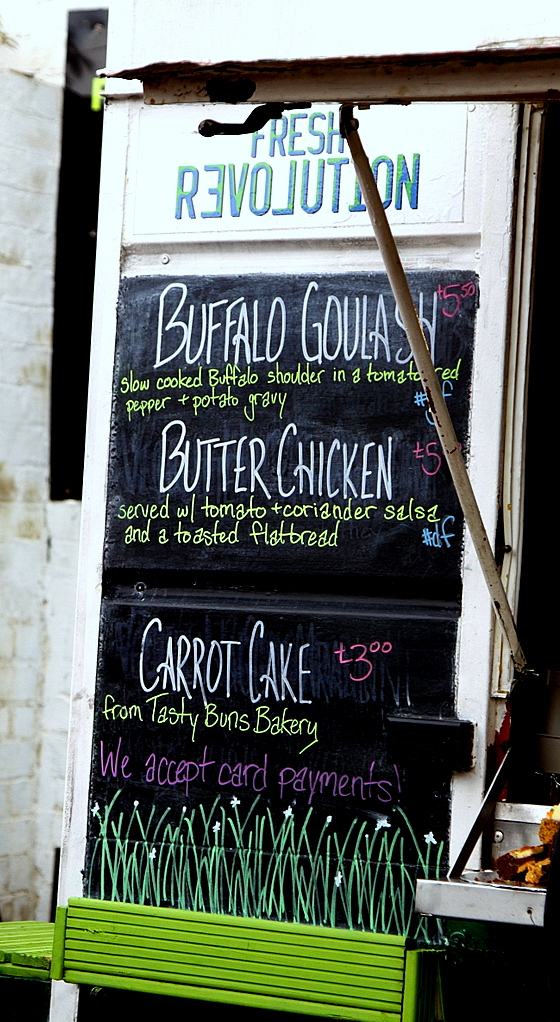 FRESH
REVOLUTION
BUFFALO GOULASH £5.50
slow cooked Buffalo shoulder in a tomato red
pepper + potato gravy
BUTTER CHICKEN £5
served w/ tomato + coriander salsa
and a toasted flatbread #df
CARROT CAKE £3.00
from Tasty Buns Bakery
We accept card payments!